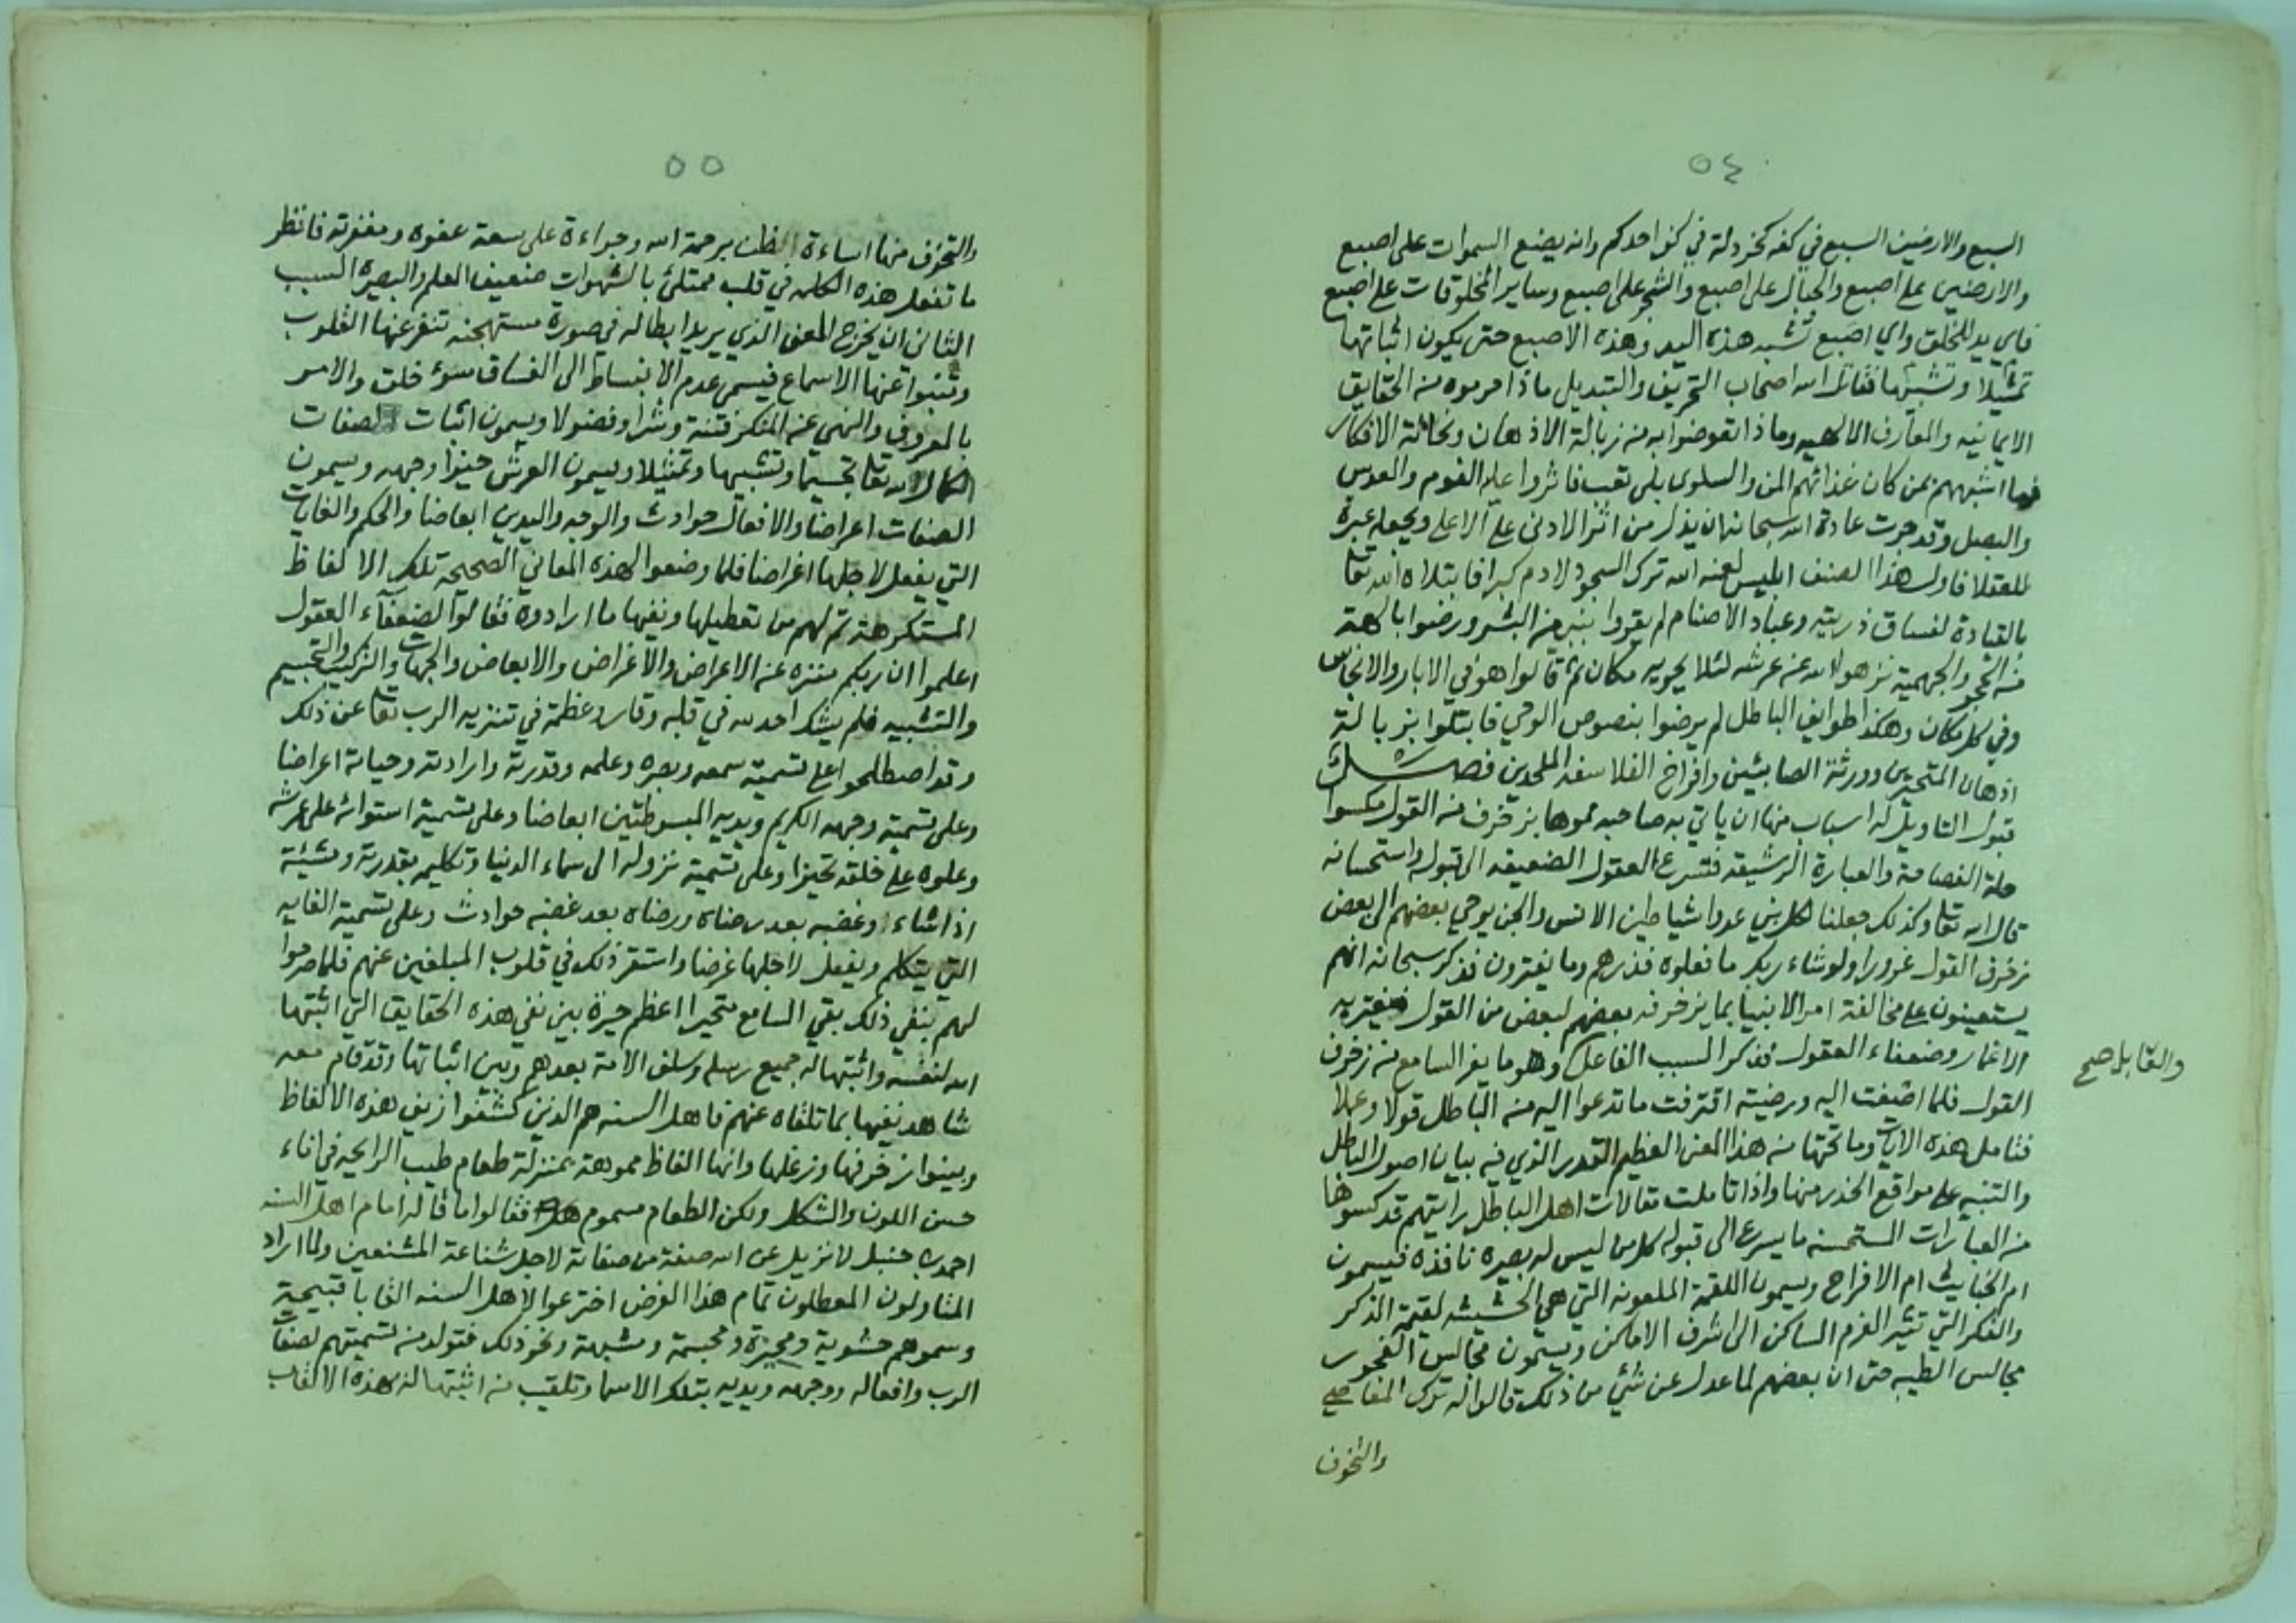 ٥٤
السبع والارضين السبع في كفه كخردلة في كف احدكم وانه يضع السموات على اصبع
والارضين على اصبع والجبال على اصبع والشجر على اصبع وساير المخلوقات على اصبع
فاي يد للخلق واي اصبع تشبه هذه اليد وهذه الاصبع حتى يكون اثباتها
تمثيلا وتشبيها فقاتل الله اصحاب التحريف والتبديل ماذا حرموه من الحقايق
الايمانيه والمعارف الالهيه وماذا تعوضوا به من زبالة الاذهان ونخالة الافكار
فما اشبههم بمن كان غذائهم المن والسلوى بلى تعب فاثروا عليه الفوم والعدس
والبصل وقد جرت عادة الله سبحانه ان يذل من اثر الادنى على الاعلى ويجعله عبرة
للعقلا فاول هذا الصنف ابليس لعنه الله ترك السجود لادم كبرا فابتلاه الله تعا
بالقيادة لفساق ذريته وعباد الاصنام لم يقروا بنبي من البشر ورضوا بالهة
من الحجر والجهمية نزهوا الله عن عرشه لئلا يحويه مكان ثم قالوا هو في الابار والانجاس
وفي كل مكان وهكذا طوايف الباطل لم يرضوا بنصوص الوحي فابتلوا بزبالة
اذهان المتحيرين وورثة الصابئين وافراخ الفلاسفه الملحدين فصل
قبول التاويل له اسباب منها ان ياتي به صاحبه مموها بزخرف من القول مكسوا
حلة الفصاحة والعبارة الرشيقه فتسرع العقول الضعيفه الى قبوله واستحسانه
قال الله تعا وكذلك جعلنا لكل نبي عدوا شياطين الانس والجن يوحي بعضهم الى بعض
زخرف القول غرورا ولو شاء ربك ما فعلوه فذرهم وما يفترون فذكر سبحانه انهم
يستعينون على مخالفة امر الانبيا بما يزخرفه بعضهم لبعض من القول فيغتر به
الاغمار وضعفاء العقول فذكر السبب الفاعل وهو ما يغر السامع من زخرف
والقابل صح
القول فلما اصغت اليه ورضيته اقترفت ما تدعوا اليه من الباطل قولا وعملا
فتامل هذه الايات وما تحتها من هذا المعنى العظيم القدر الذي فيه بيان اصول الباطل
والتنبه على مواقع الحذر منها واذا تاملت مقالات اهل الباطل رايتهم قد كسوها
من العبارات المستحسنه ما يسرع الى قبوله كل من ليس له بصيرة نافذة فيسمون
ام الخبايث ام الافراح ويسمون اللقمة الملعونه التي هي الحشيشه لقيمة الذكر
والفكر التي تثير العزم الساكن الى اشرف الاماكن ويسمون مجالس الفجور
مجالس الطيبه حتى ان بعضهم لما عدل عن شئ من ذلك قالوا له ترك المعاصي
والتخوف
٥٥
والتخوف منها اساءة الظن برحمة الله وجراءة على سعة عفوه ومغفرته فانظر
ما تفعل هذه الكلمه في قلب ممتلئ بالشهوات ضعيف العلم والبصيرة السبب
الثاني ان يخرج المعنى الذي يريد ابطاله في صورة مستهجنه تنفر عنها القلوب
وتنبوا عنها الاسماع فيسمى عدم الانبساط الى الفساق سوء خلق والامر
بالمعروف والنهي عن المنكر فتنة وشرا وفضولا ويسمون اثبات الصفات
الكمال لله تعا تجسيما وتشبيها وتمثيلا ويسمون العرش حيزا وجهه ويسمون
الصفات اعراضا والافعال حوادث والوجه واليدين ابعاضا والحكم والغايات
التي يفعل لاجلها اغراضا فلما وضعوا لهذه المعاني الصحيحه تلك الالفاظ
المستكرهة تم لهم من تعطيلها ونفيها ما ارادوه فقالوا لضعفآء العقول
اعلموا ان ربكم منزه عن الاعراض والاغراض والابعاض والجهات والتركيب والتجسيم
والتشبيه فلم يشك احد لله في قلبه وقار وعظمة في تنزيه الرب تعا عن ذلك
وقد اصطلحوا على تسمية سمعه وبصره وعلمه وقدرته وارادته وحياته اعراضا
وعلى تسمية وجهه الكريم ويديه المبسوطتين ابعاضا وعلى تسمية استوائه على عرشه
وعلوه على خلقه تحيزا وعلى تسمية نزوله الى سماء الدنيا وتكليمه بقدرته ومشيئته
اذا شاء وغضبه بعد رضاه ورضاه بعد غضبه حوادث وعلى تسمية الغايه
التي يتكلم ويفعل لاجلها غرضا واستقر ذلك في قلوب المبلغين عنهم فلما صرحوا
لهم بنفي ذلك بقي السامع متحيرا اعظم حيرة بين نفي هذه الحقايق التي اثبتها
الله لنفسه واثبتها له جميع رسله وسلف الامة بعدهم وبين اثباتها وقد قام معه
شاهد نفيها بما تلقاه عنهم فاهل السنه هم الذين كشفوا زيف هذه الالفاظ
وبينوا زخرفها وزغلها وانها الفاظ مموهة بمنزلة طعام طيب الرايحه في اناء
حسن اللون والشكل ولكن الطعام مسموم فقالوا ما قاله امام اهل السنه
احمد بن حنبل لا نزيل عن الله صفة من صفاته لاجل شناعة المشنعين ولما اراد
المتاولون المعطلون تمام هذا الغرض اخترعوا لاهل السنه القابا قبيحة
وسموهم حشوية ومحيزة ومجسمة ومشبهة ونحو ذلك فتولد من تسميتهم لصفات
الرب وافعاله ووجهه ويديه بتلك الاسما وتلقيب من اثبتها له بهذه الالقاب